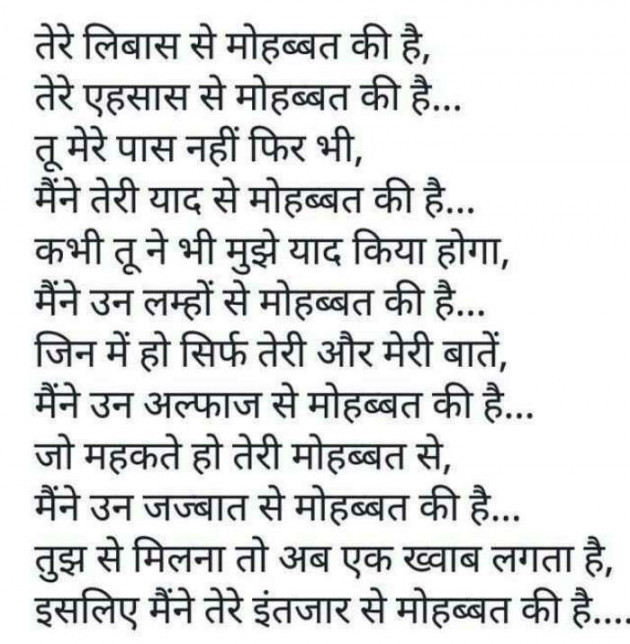 तेरे लिबास से मोहब्बत की है,
तेरे एहसास से मोहब्बत की है...
तू मेरे पास नहीं फिर भी,
मैंने तेरी याद से मोहब्बत की है...
कभी तू ने भी मुझे याद किया होगा,
मैंने उन लम्हों से मोहब्बत की है...
जिन में हो सिर्फ तेरी और मेरी बातें,
मैंने उन अल्फाज से मोहब्बत की है...
जो महकते हो तेरी मोहब्बत से,
मैंने उन जज्बात से मोहब्बत की है...
तुझ से मिलना तो अब एक ख्वाब लगता है,
इसलिए मैंने तेरे इंतजार से मोहब्बत की है....